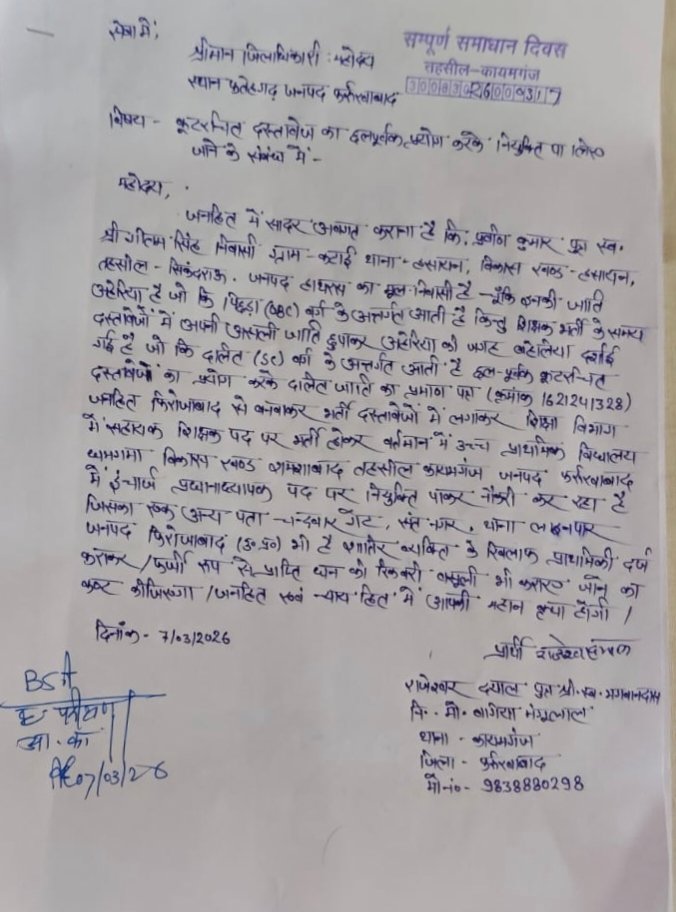 सेवा में,
सम्पूर्ण समाधान दिवस
तहसील-कायमगंज
श्रीमान जिलाधिकारी महोदय
स्थान फतेहगढ़ जनपद फर्रुखाबाद
विषय - कूटरचित दस्तावेज का छलपूर्वक प्रयोग करके नियुक्ति पा लिए
जाने के संबंध में -
महोदय,
जनहित में सादर अवगत कराना है कि, प्रवीण कुमार पुत्र स्व.
श्री गीतम सिंह निवासी ग्राम - कटाई थाना - हसायन, विकास खण्ड - हसायन,
तहसील - सिकंदराऊ. जनपद हाथरस का मूल निवासी है चूँकि इनकी जाति
अहेरिया है जो कि पिछड़ा (OBC) वर्ग के अन्तर्गत आती है किन्तु शिक्षक भर्ती के समय
दस्तावेजों में अपनी असली जाति छुपाकर अहेरिया की जगह बहेलिया दर्शाई
गई है जो कि दलित (SC) वर्ग के अन्तर्गत आती है छल-पूर्वक कूटरचित
दस्तावेजों का प्रयोग करके दलित जाति का प्रमाण पत्र (क्रमांक 1621241328)
जनहित फिरोजाबाद से बनवाकर भर्ती दस्तावेजों में लगाकर शिक्षा विभाग
में सहायक शिक्षक पद पर भर्ती होकर वर्तमान में उच्च प्राथमिक विद्यालय
विकास खण्ड शमशाबाद तहसील कायमगंज जनपद फर्रुखाबाद
में इंचार्ज प्रधानाध्यापक पद पर नियुक्ति पाकर नौकरी कर रहा है
जिसका एक अन्य पता चन्दवार गेट, संत नगर, थाना लाइनपार
जनपद फिरोजाबाद (उ.प्र०) भी है शातिर व्यक्ति के खिलाफ प्राथमिकी दर्ज
कराकर / फर्जी रूप से प्राप्ति धन की रिकवरी वसूली भी कराए जाने का
कष्ट कीजिएगा / जनहित एवं न्याय हित में आपकी महान कृपा होगी /
दिनांक - 7/03/2026
प्रार्थी
राजेश्वर दयाल पुत्र श्री. स्व. भगवानदास
नि. मो. बगिया मंगूलाल
थाना - कायमगंज
जिला - फर्रुखाबाद
मो नं० - 9838880298
BSA
07/03/26